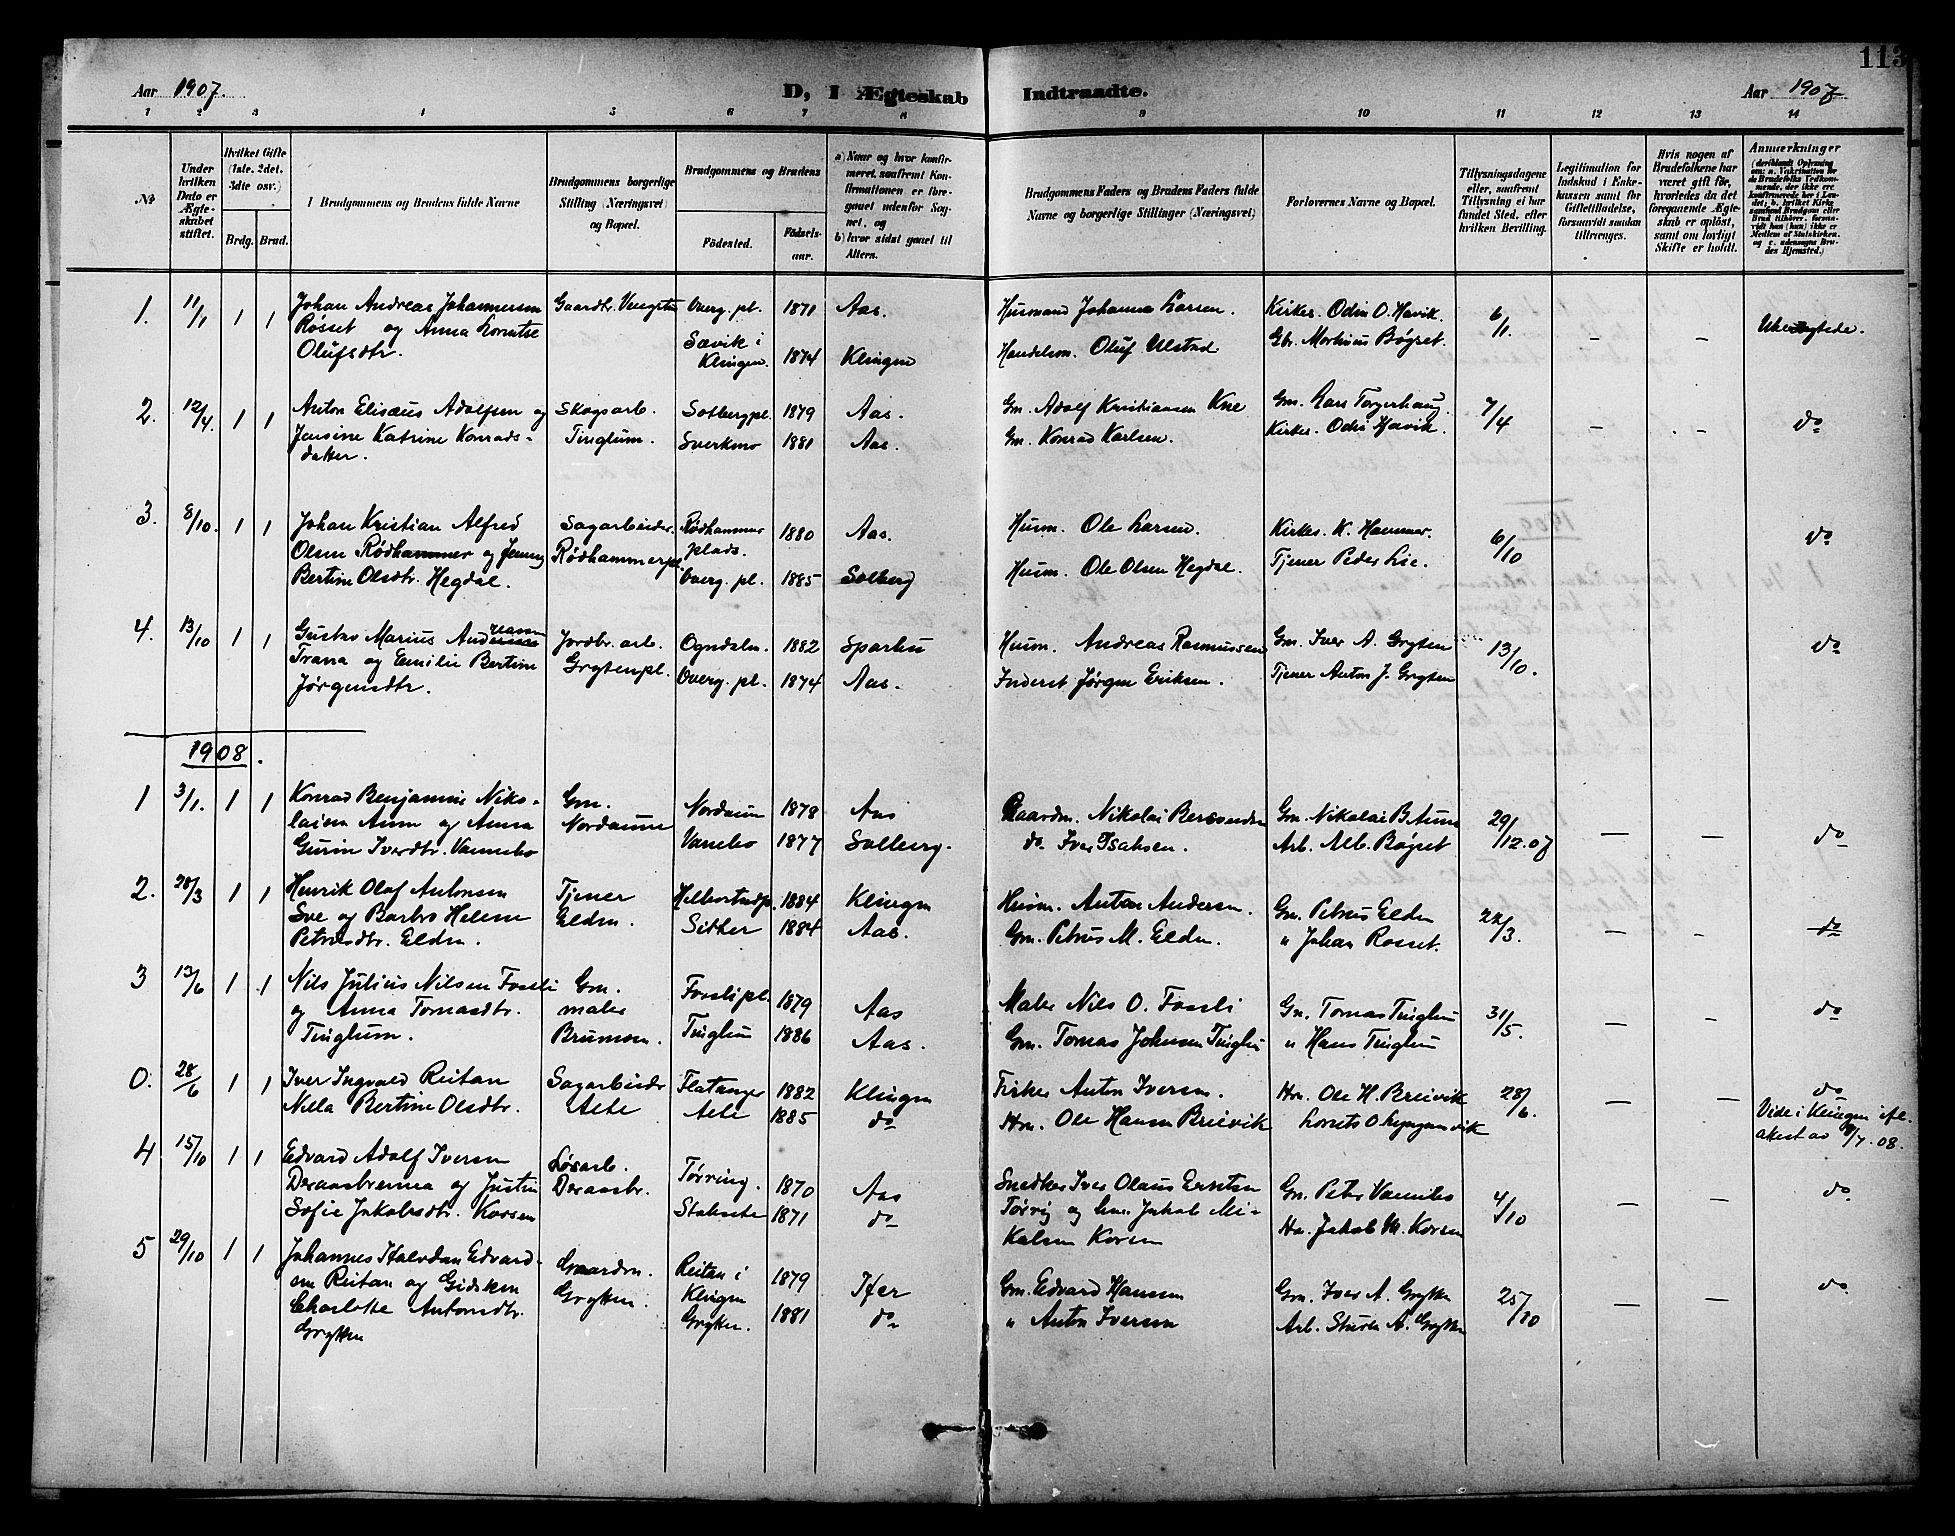 113
Aar 1907. D, I Ægteskab Indtraadte. Aar 1907
1 2 3 4 5 6 7 8 9 10 11 12 13 14
No
Under hvilken Dato er Ægteskabet stiftet.
Hvilket Gifte (1ste, 2det, 3die osv.)
Brdg. Brud.
I Brudgommens og Brudens fulde Navne
Brudgommens borgerlige Stilling (Næringsvei) og Bopæl.
Brudgommens og Brudens
Födested. Födselsaar.
a) Naar og hvor konfirmeret, saafremt Konfirmationen er foregaaet udenfor Sognet, og
b) hvor sidst gaaet til Alters.
Brudgommens Faders og Brudens Faders fulde Navne og borgerlige Stillinger (Næringsvei)
Forlovernes Navne og Bopæl.
Tillysningsdagene eller, saafremt Tillysning ei har fundet Sted, efter hvilken Bevilling.
Legitimation for Indskud i Enkekassen samt for Giftetilladelse, forsaavidt saadan tiltrænges.
Hvis nogen af Brudefolkene har været gift för, hvorledes da det foregaaende Ægteskab er oplöst, samt om lovligt Skifte er holdt.
Anmærkninger
1. 11/1 1 1 Johan Andreas Johannessen Gaardbr. Overg. pl. 1871 Aas. Husmand Johanna Larsen. Kirkes. Odin O. Havik. 6/1. – –
Røsset og Anna Lorntse Sævik i
Olufsdtr. Klingen. 1874 Klingen Handelsm. Oluf Ulstad Gbr. Bøgset.
2. 12/4 1 1 Anton Elisæus Adolfsen og Skogsarb. Solbergpl. 1879 Aas. Gm. Adolf Kristiansen Kne Gm. Lars Torgerhaug 7/4 – – do
Jensine Katrine Konrads- Tinglum. Sverkmo 1881 Aas. Gm. Konrad Karlsen. Kirkes. Odin Havik.
datter.
3. 8/10. 1 1 Johan Kristian Alfred Sagarbeider Rødhammer 1880 Aas. Husm. Ole Larsen. Kirkes. K. Hammer. 6/10 do
Olsen Rødhammer og Jenny Rødhammerpl. plads.
Bertine Olsdtr. Hegdal. Overg. pl. 1885 Solberg Husm. Ole Olsen Hegdal. Tjener Peder Lie.
4. 13/10 1 1 Gustav Marius Andreassen Jordbr. arb. Ogndaln. 1882 Sparbu Husm. Andreas Rasmussen Gm. Iver A. Gryten 13/10. do
Trana og Emilie Bertine Grytenpl. Overg. pl. 1874 Aas. Inderst Jørgen Eriksen. Tjener Anton J. Gryten
Jørgensdtr.
1908.
1 3/1. 1 1 Konrad Benjamin Niko- Gm. Nordaune 1878 Aas Gaardm. Nikolai Gm. Nikolai B. Aune 29/12.07 – – do
laisen Aune og Anna Nordaune Vannebo 1877 Solberg. do. Iver Isaksen. Arb. Alb. Bøgset
Gurine Iverdtr. Vannebo
2. 28/3 1 1 Henrik Olaf Antonsen Tjener 1884 Klingen Husm. Anton Andersen. Gm. Petrus Elden 22/3. – – do
Sve og Barbro Helene Elden. Sitter 1884 Aas. Gm. Petrus M. Elden. " Johan Rosset.
Petrusdtr. Elden.
3 13/6 1 1 Nils Julius Nilsen Fossli Gm. Fosslipl. 1879 Aas Maler Nils O. Fossli Gm. Tomas Tinglum 31/5. – – do
og Anna Tomasdtr. maler Tinglum 1886 Aas. Gm. Tomas Johnsen Tinglum " Hans Tinglum
Tinglum. Brumoen.
0. 28/6 1 1 Iver Ingvald Reitan Sagarbeider Flatanger 1882 Klingen Anton Iversen. Hm. Ole H. Breivik 28/6. – – do
Nella Bertine Olsdtr. Aele Aele 1885 do Hm. Ole Hansen Breivik Lornts O. Vide i Klingen
7.08.
4 15/10 1 1 Edvard Adolf Iversen Løsarb. Tørring. 1870 Aas Snedker Iver Olaus Gm. Peter Vannebo 4/10 – – do
Deraasbrenna og Justine Deraasbr. 1871 do og Jakob Mi- Hm. Jakob M. Korsen
Sofie Jakobsdtr. Korsen kalsen Korsen
5 29/10 1 1 Johannes Halvdan Edvard- Gaardm. Reitan i 1879 Gm. Edvard Hansen Gm. Iver A. Grytten 25/10 – – do
sen Reitan og Gidsken Grytten. Klingen
Charlotte Antonsdtr. Grytten. 1881 do " Anton Iversen Arb. A. Grytten
Grytten